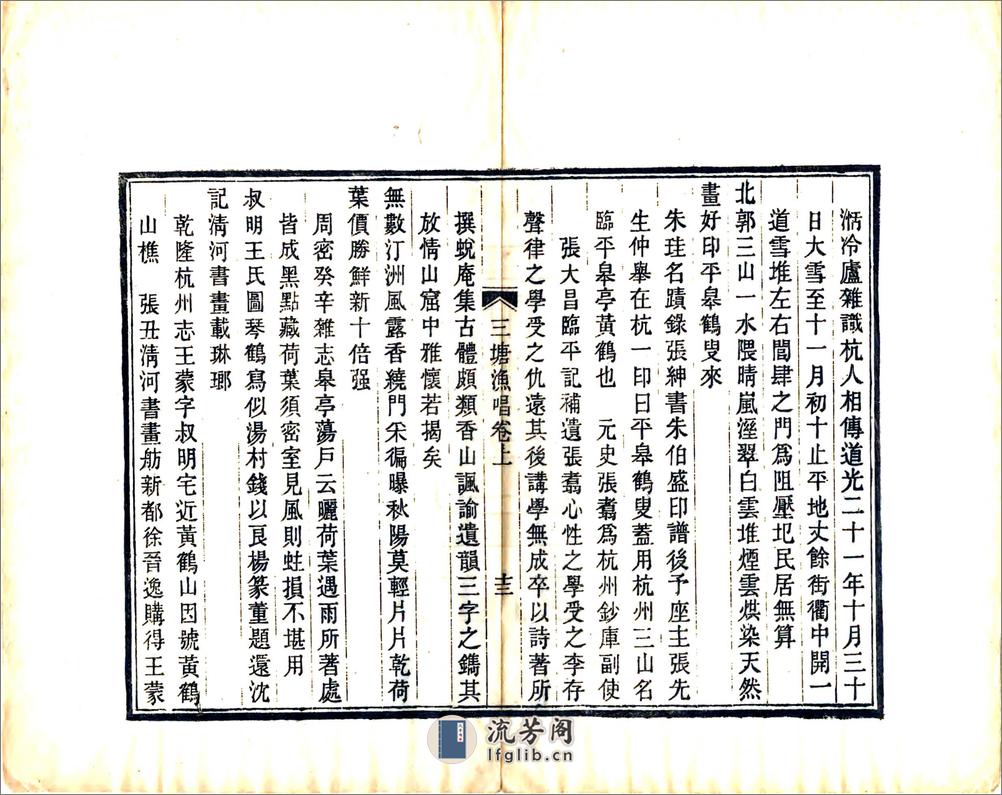 冷廬雜識杭人相傳道光二十一年十月三十
日大雪至十一月初十止平地丈餘街衢中開一
道雪堆左右閭肆之門爲阻壓圯民居無算
北郭三山一水隈晴嵐溼翠白雲堆煙雲烘染天然
畫好印平皋鶴叟來
朱珪名蹟錄張紳書朱伯盛印譜後予座主張先
生仲舉在杭一印曰平皋鶴叟蓋用杭州三山名
臨平皋亭黃鶴也　元史張翥爲杭州鈔庫副使
張大昌臨平記補遺張翥心性之學受之李存
聲律之學受之仇遠其後講學無成卒以詩著所
三塘漁唱卷上
十三
撰蛻庵集古體頗類香山諷諭遺韻三字之鐫其
放情山窟中雅懷若揭矣
無數汀洲風露香繞門采徧曝秋陽莫輕片片乾荷
葉價勝鮮新十倍强
周密癸辛雜志皋亭蕩戶云曬荷葉遇雨所著處
皆成黑點藏荷葉須密室見風則蛀損不堪用
叔明王氏圖琴鶴寫似湯村錢以良楊篆董題還沈
記淸河書畫載琳瑯
乾隆杭州志王蒙字叔明宅近黃鶴山因號黃鶴
山樵　張丑淸河書畫舫新都徐晉逸購得王蒙
流芳阁
lfglib.cn